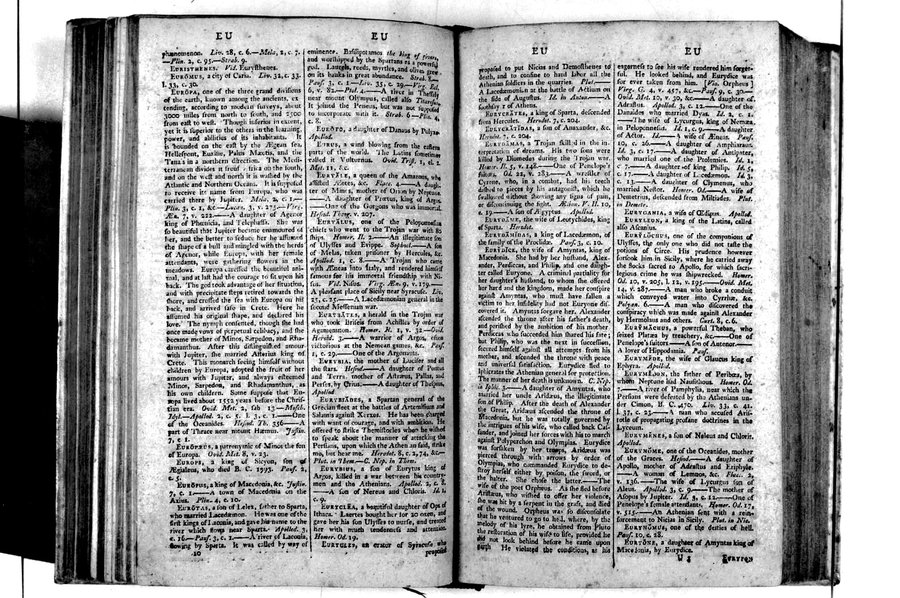 EU
phænomenon. Liv. 28, c. 6.—Mela, 2, c. 7.
—Plin. 2, c. 95.—Strab. 9.
EURISTHENES. Vid. Eurysthenes.
EURÔMUS, a city of Caria. Liv. 32, c. 33.
l. 33, c. 30.
EURÔPA, one of the three grand divisions
of the earth, known among the ancients, ex-
tending, according to modern surveys, about
3000 miles from north to south, and 2500
from east to west. Though inferior in extent,
yet it is superior to the others in the learning,
power, and abilities of its inhabitants. It
is bounded on the east by the Ægean sea,
Hellespont, Euxine, Palus Mæotis, and the
Tanais in a northern direction. The Medi-
terranean divides it from Africa on the south,
and on the west and north it is washed by the
Atlantic and Northern Oceans. It is supposed
to receive its name from Europa, who was
carried there by Jupiter. Mela, 2, c. 1.—
Plin. 3, c. 1, &c.—Lucan. 3, v. 275.—Virg.
Æn. 7, v. 222.—A daughter of Agenor
king of Phœnicia, and Telephassa. She was
so beautiful that Jupiter became enamoured of
her, and the better to seduce her he assumed
the shape of a bull and mingled with the herds
of Agenor, while Europa, with her female
attendants, were gathering flowers in the
meadows. Europa caressed the beautiful ani-
mal, and at last had the courage to sit upon his
back. The god took advantage of her situation,
and with precipitate steps retired towards the
shore, and crossed the sea with Europa on his
back, and arrived safe in Crete. Here he
assumed his original shape, and declared his
love. The nymph consented, though she had
once made vows of perpetual celibacy, and she
became mother of Minos, Sarpedon, and Rha-
damanthus. After this distinguished amour
with Jupiter, she married Asterius king of
Crete. This monarch seeing himself without
children by Europa, adopted the fruit of her
amours with Jupiter, and always esteemed
Minos, Sarpedon, and Rhadamanthus, as
his own children. Some suppose that Eu-
ropa lived about 1552 years before the Christ-
tian era. Ovid. Met. 2, fab. 13.—Mosch.
Idyl.—Apollod. 2, c. 5. l. 3, c. 1.—One
of the Oceanides. Hesiod. Th. 356.—A
part of Thrace near mount Hæmus. Justin.
7, c. 1.
EUROPÆUS, a patronymic of Minos the son
of Europa. Ovid. Met. 8, v. 23.
EUROPS, a king of Sicyon, son of
Ægialeus, who died B. C. 1993. Paus. 2,
c. 5.
EURÔPUS, a king of Macedonia, &c. Justin.
7, c. 1.—A town of Macedonia on the
Axius. Plin. 4, c. 10.
EURÔTAS, a son of Lelex, father to Sparta,
who married Lacedæmon. He was one of the
first kings of Laconia, and gave his name to the
river which flows near Sparta. Apollod. 3,
c. 16.—Paus. 3, c. 1.—A river of Laconia,
flowing by Sparta. It was called by way of
10
EU
eminence, Basilipotamos the king of rivers,
and worshipped by the Spartans as a powerful
god. Laurels, reeds, myrtles, and olives grew
on its banks in great abundance. Strab. 8.—
Paus. 3, c. 1.—Liv. 35, c. 29.—Virg. Ecl.
6, v. 82.—Ptol. 4.—A river in Thessaly
near mount Olympus, called also Titaresus.
It joined the Peneus, but was not supposed
to incorporate with it. Strab. 6.—Plin. 4,
c. 8.
EURÔTO, a daughter of Danaus by Polyxo.
Apollod.
EURUS, a wind blowing from the eastern
parts of the world. The Latins sometimes
called it Vulturnus. Ovid. Trist. 1, el. 2.
Met. 11, &c.
EURYALE, a queen of the Amazons, who
assisted Æetes, &c. Flacc. 4.—A daugh-
ter of Minos, mother of Orion by Neptune.
—A daughter of Prœtus, king of Argos.
—One of the Gorgons who was immortal.
Hesiod. Theog. v. 207.
EURYALUS, one of the Peloponnesian
chiefs who went to the Trojan war with 80
ships. Homer. Il. 2.—An illegitimate son
of Ulysses and Evippe. Sophocl.—A son
of Melas, taken prisoner by Hercules, &c.
Apollod. 1, c. 8.—A Trojan who came
with Æneas into Italy, and rendered himself
famous for his immortal friendship with Ni-
sus. Vid. Nisus. Virg. Æn. 9, v. 179.—
A pleasant place of Sicily near Syracuse. Liv.
25, c. 25.—A Lacedæmonian general in the
second Messenian war.
EURYBATES, a herald in the Trojan war
who took Briseis from Achilles by order of
Agamemnon. Homer. Il. 1, v. 32.—Ovid.
Heroid. 3.—A warrior of Argos, often
victorious at the Nemean games, &c. Paus.
1, c. 29.—One of the Argonauts.
EURYBIA, the mother of Lucifer and all
the stars. Hesiod.—A daughter of Pontus
and Terra, mother of Astræus, Pallas, and
Perses, by Crius.—A daughter of Thespius.
Apollod.
EURYBIADES, a Spartan general of the
Grecian fleet at the battles of Artemisium and
Salamis against Xerxes. He has been charged
with want of courage, and with ambition. He
offered to strike Themistocles when he wished
to speak about the manner of attacking the
Persians, upon which the Athenian said, strike
me, but hear me. Herodot. 8, c. 2, 74, &c.—
Plut. in Them.—C. Nep. in Them.
EURYBIUS, a son of Eurytus king of
Argos, killed in a war between his country-
men and the Athenians. Apollod. 2, c. 8.
—A son of Nereus and Chloris. Id. 1.
c. 9.
EURYCLEA, a beautiful daughter of Ops of
Ithaca. Laertes bought her for 20 oxen, and
gave her his son Ulysses to nurse, and treated
her with much tenderness and attention.
Homer. Od. 19.
EURYCLES, an orator of Syracuse who
proposed
EU
proposed to put Nicias and Demosthenes to
death, and to confine to hard labor all the
Athenian soldiers in the quarries. Plut.—
A Lacedæmonian at the battle of Actium on
the side of Augustus. Id. in Anton.—A
soothsayer of Athens.
EURYCRATES, a king of Sparta, descended
from Hercules. Herodot. 7, c. 204.
EURYCRATIDAS, a son of Anaxander, &c.
Herodot. 7, c. 204.
EURYDAMAS, a Trojan skilled in the in-
terpretation of dreams. His two sons were
killed by Diomedes during the Trojan war.
Homer. Il. 5, v. 148.—One of Penelope's
suitors. Od. 22, v. 283.—A wrestler of
Cyrene, who, in a combat, had his teeth
dashed to pieces by his antagonist, which he
swallowed without showing any signs of pain,
or discontinuing the fight. Ælian. V. H. 10,
c. 19.—A son of Ægyptus. Apollod.
EURYDAME, the wife of Leotychides, king
of Sparta. Herodot.
EURYDAMIDAS, a king of Lacedæmon, of
the family of the Proclidæ. Paus. 3, c. 10.
EURYDICE, the wife of Amyntas, king of
Macedonia. She had by her husband, Alex-
ander, Perdiccas, and Philip, and one daugh-
ter called Euryone. A criminal partiality for
her daughter's husband, to whom she offered
her hand and the kingdom, made her conspire
against Amyntas, who must have fallen a
victim to her infidelity had not Euryone dis-
covered it. Amyntas forgave her. Alexander
ascended the throne after his father's death,
and perished by the ambition of his mother.
Perdiccas who succeeded him shared his fate;
but Philip, who was the next in succession,
secured himself against all attempts from his
mother, and ascended the throne with peace
and universal satisfaction. Eurydice fled to
Iphicrates the Athenian general for protection.
The manner of her death is unknown. C. Nep.
in Iphic. 3.—A daughter of Amyntas, who
married her uncle Aridæus, the illegitimate
son of Philip. After the death of Alexander
the Great, Aridæus ascended the throne of
Macedonia, but he was totally governed by
the intrigues of his wife, who called back Cas-
sander, and joined her forces with his to march
against Polyperchon and Olympias. Eurydice
was forsaken by her troops, Aridæus was
pierced through with arrows by order of
Olympias, who commanded Eurydice to de-
stroy herself either by poison, the sword, or
the halter. She chose the latter.—The
wife of the poet Orpheus. As she fled before
Aristæus, who wished to offer her violence,
she was bit by a serpent in the grass, and died
of the wound. Orpheus was so disconsolate
that he ventured to go to hell, where, by the
melody of his lyre, he obtained from Pluto
the restoration of his wife to life, provided he
did not look behind before he came upon
earth. He violated the conditions, as his
EU
eagerness to see his wife rendered him forget-
ful. He looked behind, and Eurydice was
for ever taken from him. [Vid. Orpheus.]
Virg. G. 4, v. 457, &c.—Paus. 9, c. 30.—
Ovid. Met. 10, v. 30, &c.—A daughter of
Adrastus. Apollod. 3, c. 12.—One of the
Danaides who married Dyas. Id. 2, c. 1.
—The wife of Lycurgus, king of Nemæa,
in Peloponnesus. Id. 1, c. 9.—A daughter
of Actor. Id.—A wife of Æneas. Paus.
10, c. 26.—A daughter of Amphiaraus.
Id. 3, c. 17.—A daughter of Antipater,
who married one of the Ptolemies. Id. 1,
c. 7.—A daughter of king Philip. Id. 5,
c. 17.—A daughter of Lacedæmon. Id. 3,
c. 13.—A daughter of Clymenus, who
married Nestor. Homer. Od.—A wife of
Demetrius, descended from Miltiades. Plut.
in Demetr.
EURYGANIA, a wife of Œdipus. Apollod.
EURYLEON, a king of the Latins, called
also Ascanius.
EURYLOCHUS, one of the companions of
Ulysses, the only one who did not taste the
potions of Circe. His prudence however
forsook him in Sicily, where he carried away
the flocks sacred to Apollo, for which sacri-
legious crime he was shipwrecked. Homer.
Od. 10, v. 205, l. 12, v. 195.—Ovid. Met.
14, v. 287.—A man who broke a conduit
which conveyed water into Cyrrhæ, &c.
Polyæn. 6.—A man who discovered the
conspiracy which was made against Alexander
by Hermolaus and others. Curt. 8, c. 6.
EURYMACHUS, a powerful Theban, who
seized Platæa by treachery, &c.—One of
Penelope's suitors.—A son of Antenor.—
A lover of Hippodamia. Paus.
EURYMEDE, the wife of Glaucus king of
Ephyra. Apollod.
EURYMEDON, the father of Peribœa, by
whom Neptune had Nausithous. Homer. Od.
7.—A river of Pamphylia, near which the
Persians were defeated by the Athenians un-
der Cimon, B. C. 470. Liv. 33, c. 41.
l. 37, c. 23.—A man who accused Aris-
totle of propagating profane doctrines in the
Lyceum.
EURYMENES, a son of Neleus and Chloris.
Apollod.
EURYNOME, one of the Oceanides, mother
of the Graces. Hesiod.—A daughter of
Apollo, mother of Adrastus and Eriphyle.
—A woman of Lemnos, &c. Flacc. 2,
v. 136.—The wife of Lycurgus son of
Aleus. Apollod. 3, c. 9.—The mother of
Asopus by Jupiter. Id. 3, c. 12.—One of
Penelope's female attendants. Homer. Od. 17,
v. 515.—An Athenian sent with a rein-
forcement to Nicias in Sicily. Plut. in Nic.
EURYNOMUS, one of the deities of hell.
Paus. 10, c. 28.
EURYONE, a daughter of Amyntas king of
Macedonia, by Eurydice.
U 3
EURYPON